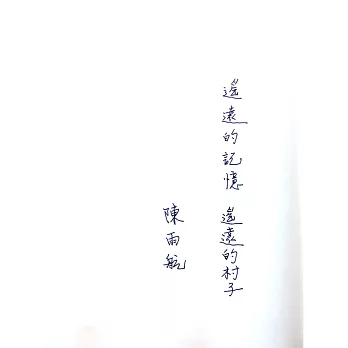 遙遠的記憶 遙遠的村子
陳雨航